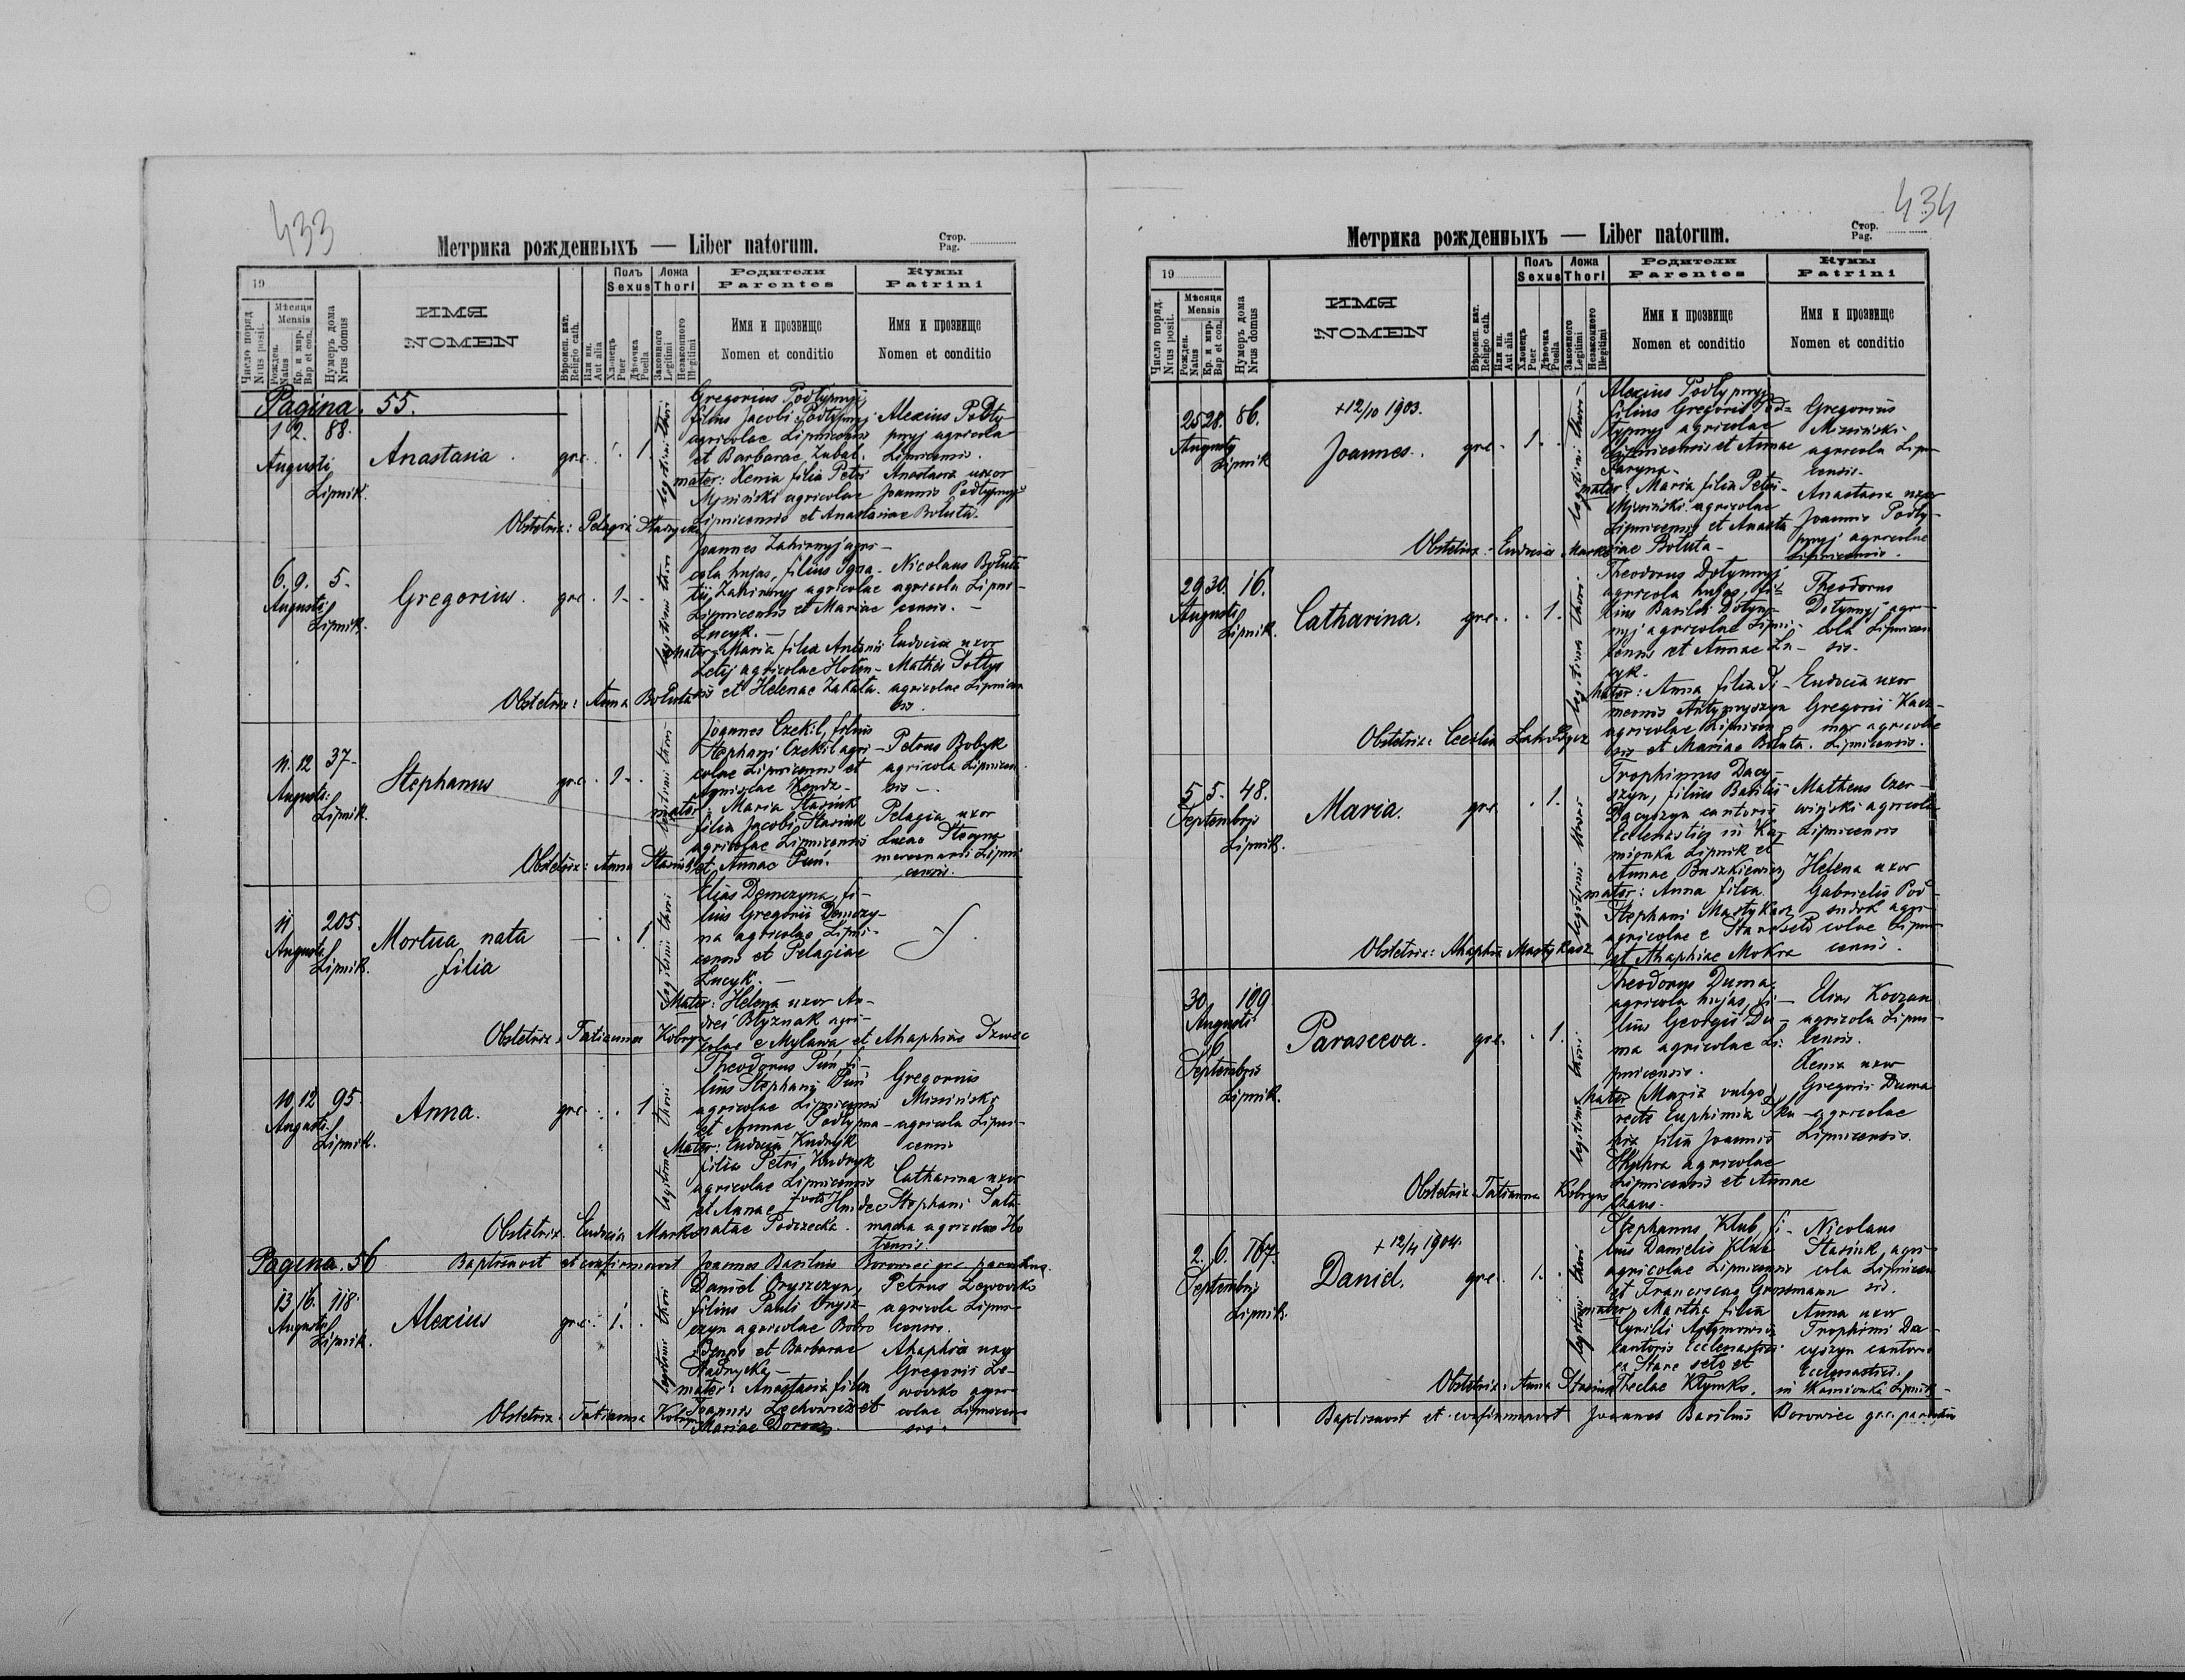 433
Метрика рожденныхъ — Liber natorum.
Стор.
Pag.
19
Число поряд.
Nrus posit.
Мѣсяця
Mensis
Рожден.
Natus
Кр. и мvр.
Bap et con.
Нумеръ дома
Nrus domus
ИМЯ
NOMEN
Вѣроисп. кат.
Religio cath.
Или ин.
Aut alia
Полъ
Sexus
Хлопецъ
Puer
Дѣвочка
Puella
Ложа
Thori
Законного
Legitimi
Незаконного
Illegitimi
Родители
Parentes
Имя и прозвище
Nomen et conditio
Кумы
Patrini
Имя и прозвище
Nomen et conditio
Pagina. 55.
1 2. 88.
Augusti
Lipnik.
Anastasia.
gr.c. 1.
legitimi thori
Gregorius Podłypnyj,
filius Jacobi Podłypnyj
agricolae Lipnicensis
et Barbarae Zubal.
mater: Xenia filia Petri
agricolae
Lipnicensis et Anastasiae Boluta.
Alexius Podły-
pnyj agricola
Lipnicensis.
Anastasia uxor
Joannis Podłypnyj
Obstetrix: Pelagia
6. 9. 5.
Augusti
Lipnik.
Gregorius.
gr.c. 1.
legitimi thori
Joannes Zahirnyj agri-
cola hujas, filius Igna-
tii Zahirnyj agricolae
Lipnicensis et Mariae
Łucyk. —
mater: Maria filia Antonii
agricolae Hoten-
sis et Helenae Zakala.
Nicolaus Boluta
agricola Lipni-
censis. —
Eudocia uxor
Mathei Soltys
agricolae Lipnicen
sis.
Obstetrix: Anna Boluta
11. 12 37.
Augusti.
Lipnik.
Stephanus
gr.c. 1.
legitimi thori
Joannes Czekil, filius
Stephani Czekil agri-
colae Lipnicensis et
mater: Maria Stasiuk
filia Jacobi Stasiuk
agricolae Lipnicensis
et Annae Puń.
Petrus Bobyk
agricola Lipnicen
sis —.
Pelagia uxor
Lucae
mercenarii Lipni
censis.
Obstetrix: Anna Stasiuk
11 205.
Augusti
Lipnik.
Mortua nata
filia
— . 1
legitimi thori
Elias Demczyna, fi-
lius Gregorii Demczy-
na agricolae Lipni-
censis et Pelagiae
Łucyk. —
Mater: Helena uxor An-
drei Błyznak agri-
colae e Mylawa et Ahaphiae
Obstetrix: Tatianna
10 12 95.
Augusti.
Lipnik.
Anna.
gr.c. 1
legitimi thori
Theodorus Puń fi-
lius Stephani Puń
agricolae Lipnicensis
et Annae Podłypna
Mater: Eudocia Kudryk
filia Petri Kudryk
agricolae Lipnicensis
et Annae
natae
Gregorius
agricola Lipni-
censis
Catharina uxor
Stephani
agricolae Ho
tensis.
Obstetrix. Eudocia Marko
Pagina. 56
Baptisavit et confirmavit Joannes Basilius Borowiec gr.c. parochus.
13 16. 118.
Augusti
Lipnik.
Alexius
gr.c. 1.
legitimi thori
Daniel Oryszczyn,
filius Pauli Orysz-
czyn agricolae Bobro
densis et Barbarae
mater: Anastasia filia
Joannis Lechowicz et
Mariae
Petrus
agricola Lipni-
censis.
Ahaphia uxor
Gregorii Le-
agri-
colae Lipnicen
sis.
Obstetrix: Tatianna
434
Метрика рожденныхъ — Liber natorum.
Стор.
Pag.
19
Число поряд.
Nrus posit.
Мѣсяця
Mensis
Рожден.
Natus
Кр. и мvр.
Bap et con.
Нумеръ дома
Nrus domus
ИМЯ
NOMEN
Вѣроисп. кат.
Religio cath.
Или ин.
Aut alia
Полъ
Sexus
Хлопецъ
Puer
Дѣвочка
Puella
Ложа
Thori
Законного
Legitimi
Незаконного
Illegitimi
Родители
Parentes
Имя и прозвище
Nomen et conditio
Кумы
Patrini
Имя и прозвище
Nomen et conditio
25 28. 86.
Augusti
Lipnik
+12/10 1903.
Joannes.
gr.c. 1.
legitimi thori
Alexius Podłypnyj
filius Gregorii Pod=
łypnyj agricolae
Lipnicensis et Annae
mater: Maria filia Petri
agricolae
Lipnicensis et Anasta
siae Boluta —
Gregorius
agricola Lipni
censis.
Anastasia uxor
Joannis Podły-
pnyj agricolae
Lipnicensis.
Obstetrix: Eudocia Marko
29 30. 16.
Augusti
Lipnik.
Catharina.
gr.c. 1.
legitimi thori
Theodorus Dotymnyj
agricola hujas, fi=
lius Basilii Dotym-
nyj agricolae Lipni-
censis et Annae Łu-
cyk.
Mater: Anna filia Si-
meonis
agricolae Lipnicen
sis et Mariae Boluta.
Theodorus
Dotymnyj agri-
cola Lipnicen
sis.
Eudocia uxor
Gregorii
agricolae
Lipnicensis.
Obstetrix: Cecilia
5 5. 48.
Septembris
Lipnik.
Maria.
gr.c. 1.
legitimi thori
Trophimus Dacy-
szyn, filius Basilii
Dacyszyn cantoris
Ecclesiastici in Ka-
mionka Lipnik et
Annae Buszkiewicz
mater: Anna filia
Stephani Mastykasz
agricolae e Staresielo
et Ahaphiae Mokra
Matheus Czer-
wiński agricola
Lipnicensis
Helena uxor
Gabrielis Pod-
agri-
colae Lipni
censis.
Obstetrix: Ahaphia Mastykasz
30. 109
Augusti
6
Septembris
Lipnik.
Parasceva.
gr.c. 1.
legitimi thori
Theodorus Duma,
agricola hujas, fi-
lius Georgii Du-
ma agricolae Li-
pnicensis.
Mater (Maria vulgo)
recte Euphimia
filia Joannis
agricolae
Lipnicensis et Annae
Elias Korzan
agricola Lipni-
censis.
Xenia uxor
Gregorii Duma
agricolae
Lipnicensis.
Obstetrix Tatianna
2. 6. 167.
Septembris
Lipnik.
+ 12/4 1904.
Daniel,
gr.c. 1.
legitimi thori
Stephanus Klub fi-
lius Danielis Klub
agricolae Lipnicensis
et Franciscae Grossmann
mater, Martha filia
Cyrilli Artymowicz
cantoris Ecclesiastici
ex Stare seło et
Theclae Klymko.
Nicolaus
Stasiuk agri-
cola Lipnicen
sis.
Anna uxor
Trophimi Da-
cyszyn cantoris
Ecclesiastici.
in Kamionka Lipnik —
Obstetrix: Anna Stasiuk
Baptisavit et confirmavit Joannes Basilius Borowiec gr.c. parochus